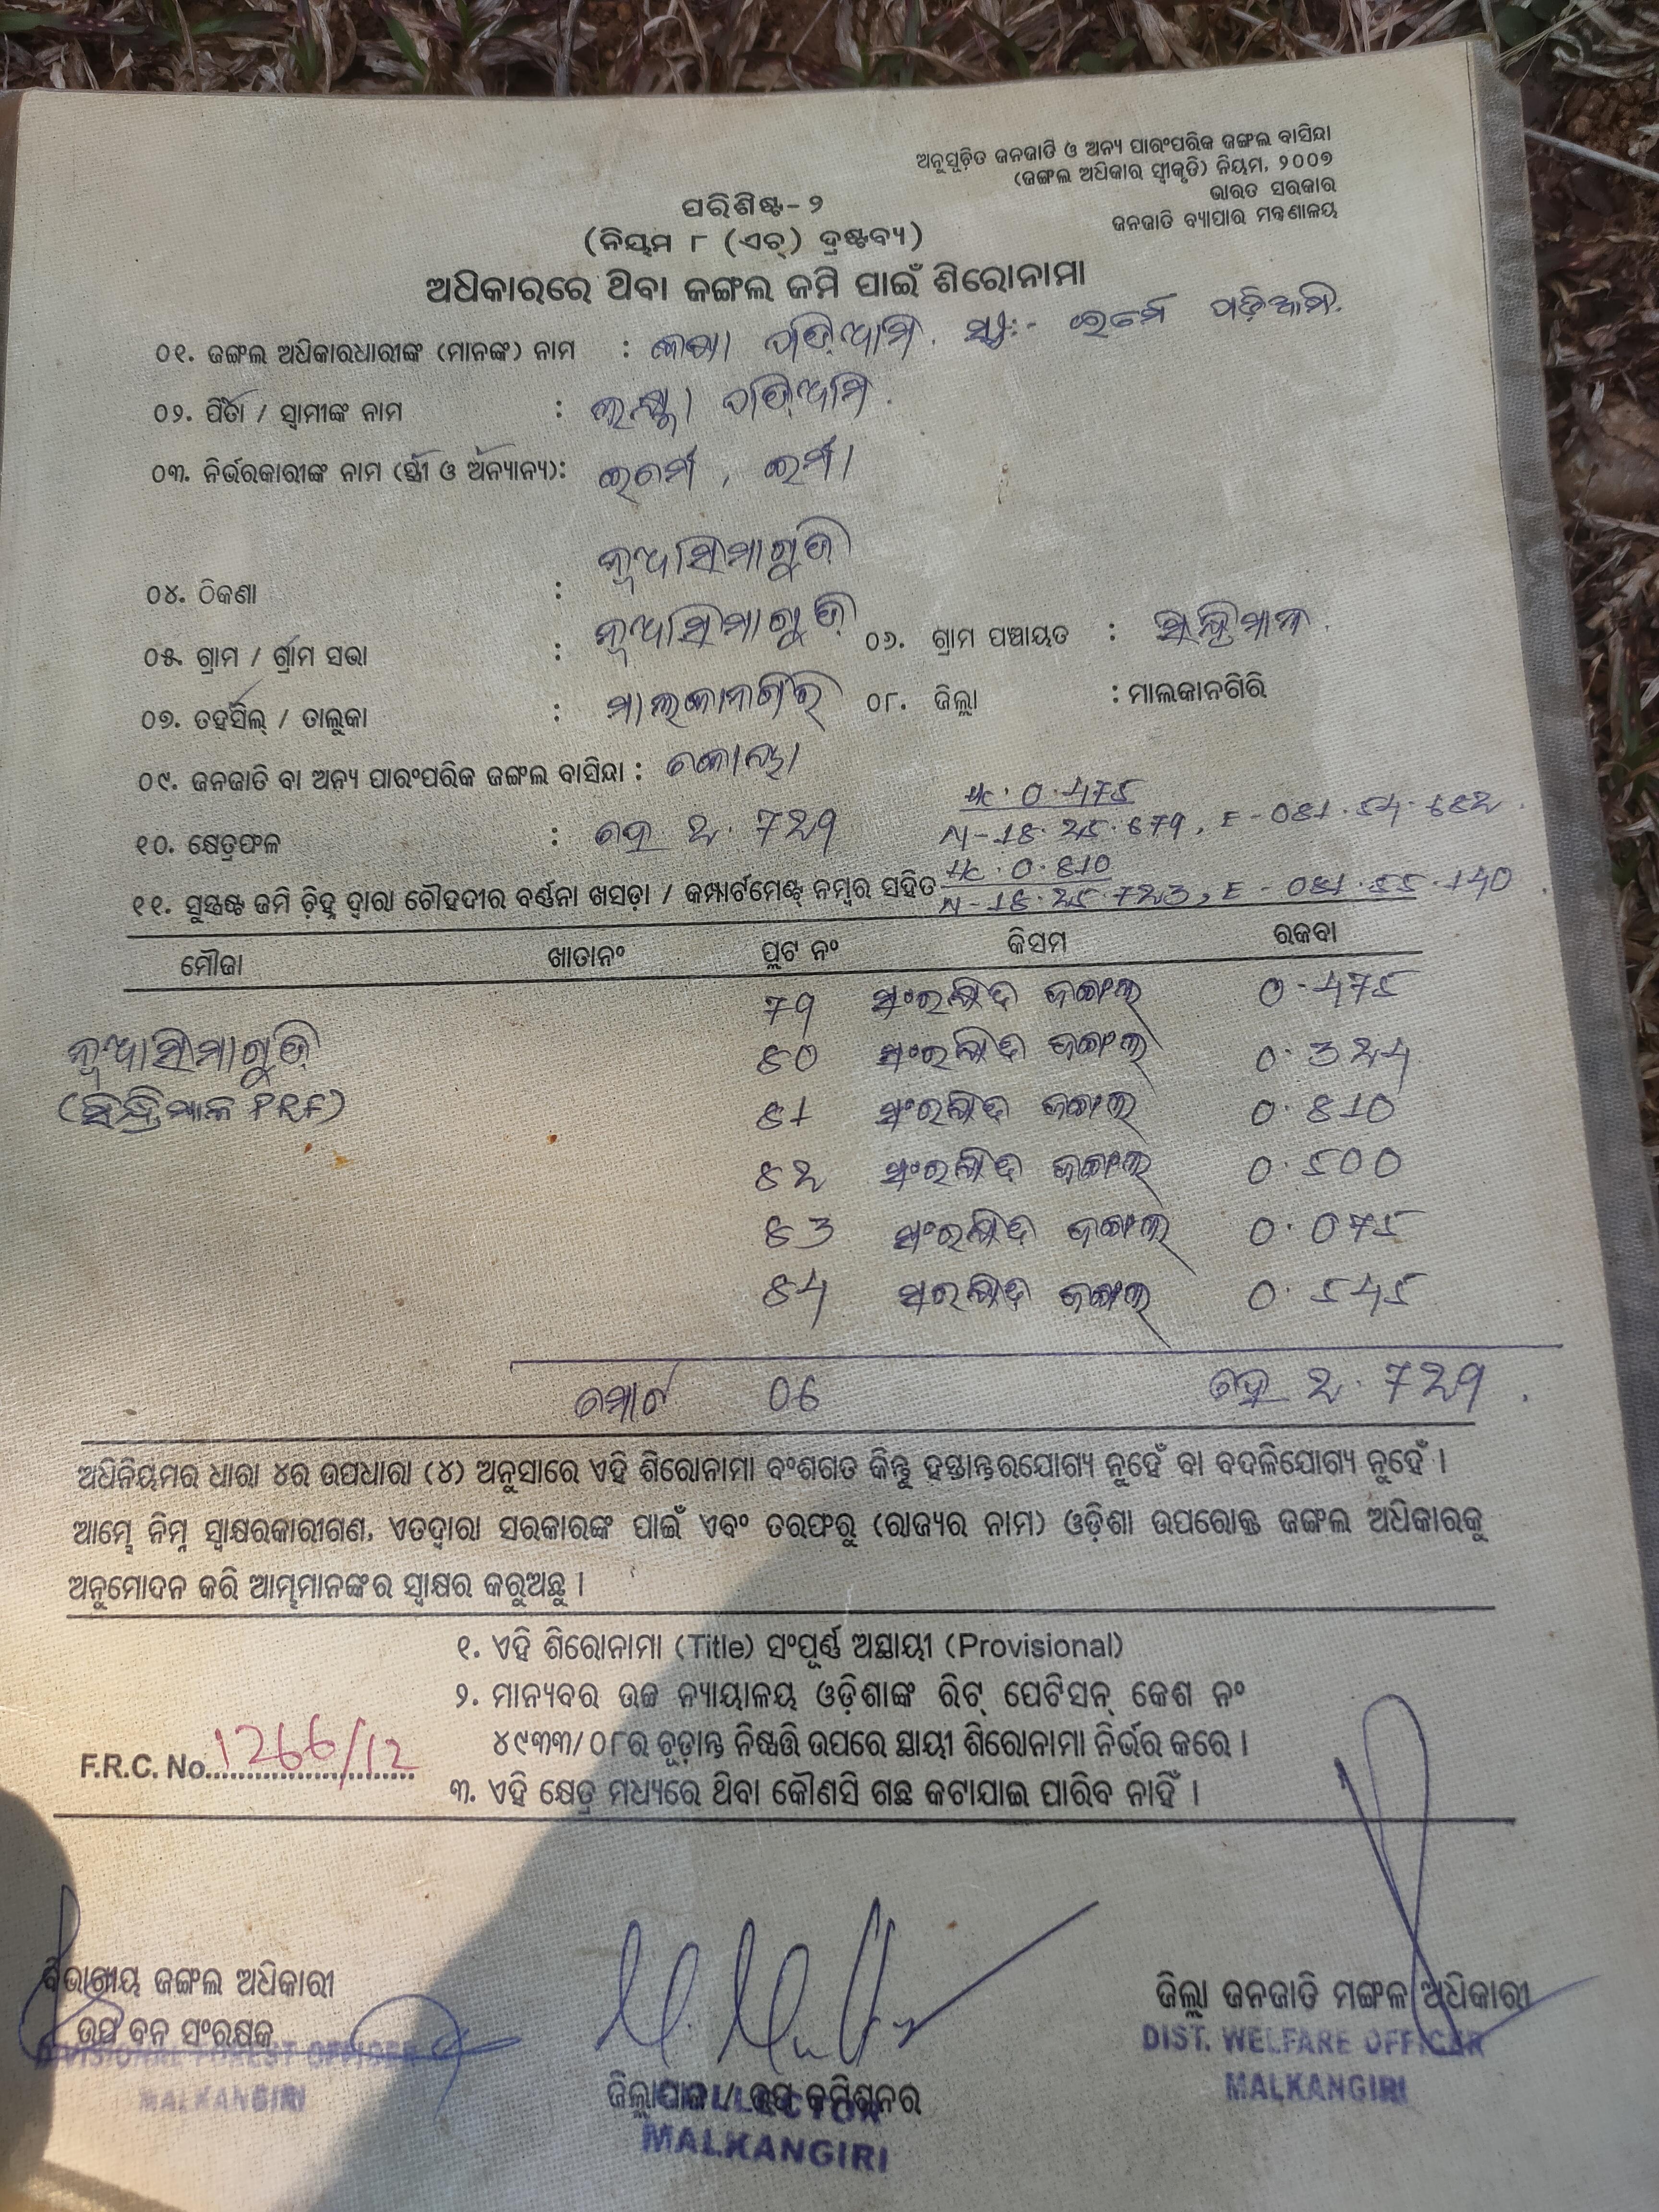 ଅନୁସୂଚିତ ଜନଜାତି ଓ ଅନ୍ୟ ପାରଂପରିକ ଜଙ୍ଗଲ ବାସିନ୍ଦା
(ଜଙ୍ଗଲ ଅଧିକାର ସ୍ୱୀକୃତି) ନିୟମ, ୨୦୦୭
ଭାରତ ସରକାର
ଜନଜାତି ବ୍ୟାପାର ମନ୍ତ୍ରଣାଳୟ
ପରିଶିଷ୍ଟ-୨
(ନିୟମ ୮ (ଏଚ୍) ଦ୍ରଷ୍ଟବ୍ୟ)
ଅଧିକାରରେ ଥିବା ଜଙ୍ଗଲ ଜମି ପାଇଁ ଶିରୋନାମା
୦୧. ଜଙ୍ଗଲ ଅଧିକାରଧାରୀଙ୍କ (ମାନଙ୍କ) ନାମ : ପଡ଼ିଆମି ପଡ଼ିଆମି
୦୨. ପିତା / ସ୍ୱାମୀଙ୍କ ନାମ : ପଡ଼ିଆମି
୦୩. ନିର୍ଭରକାରୀଙ୍କ ନାମ (ସ୍ତ୍ରୀ ଓ ଅନ୍ୟାନ୍ୟ):
୦୪. ଠିକଣା : ନୂଆସିମାଗୁଡ଼ି
୦୫. ଗ୍ରାମ / ଗ୍ରାମ ସଭା : ନୂଆସିମାଗୁଡ଼ି ୦୬. ଗ୍ରାମ ପଞ୍ଚାୟତ :
୦୭. ତହସିଲ୍ / ତାଲୁକା : ମାଲକାନଗିରି ୦୮. ଜିଲ୍ଲା : ମାଲକାନଗିରି
୦୯. ଜନଜାତି ବା ଅନ୍ୟ ପାରଂପରିକ ଜଙ୍ଗଲ ବାସିନ୍ଦା : କୋୟା
Hc. 0.475
୧୦. କ୍ଷେତ୍ରଫଳ : ହେ 2.729 N-18.25.679, E-081.54.682
Hc. 0.810
୧୧. ସୁସ୍ପଷ୍ଟ ଜମି ଚିହ୍ନ ଦ୍ୱାରା ଚୌହଦୀର ବର୍ଣ୍ଣନା ଖସଡ଼ା / କମ୍ପାର୍ଟମେଣ୍ଟ ନମ୍ବର ସହିତ N-18.25.723, E-081.55.140
ମୌଜା ଖାତାନଂ ପ୍ଲଟ ନଂ କିସମ ରକବା
79 ସଂରକ୍ଷିତ ଜଙ୍ଗଲ 0.475
ନୂଆସିମାଗୁଡ଼ି 80 ସଂରକ୍ଷିତ ଜଙ୍ଗଲ 0.324
PRF) 81 ସଂରକ୍ଷିତ ଜଙ୍ଗଲ 0.810
82 ସଂରକ୍ଷିତ ଜଙ୍ଗଲ 0.500
83 ସଂରକ୍ଷିତ ଜଙ୍ଗଲ 0.075
84 ସଂରକ୍ଷିତ ଜଙ୍ଗଲ 0.545
ମୋଟ 06 ହେ 2.729
ଅଧିନିୟମର ଧାରା ୪ର ଉପଧାରା (୪) ଅନୁସାରେ ଏହି ଶିରୋନାମା ବଂଶଗତ କିନ୍ତୁ ହସ୍ତାନ୍ତରଯୋଗ୍ୟ ନୁହେଁ ବା ବଦଳିଯୋଗ୍ୟ ନୁହେଁ ।
ଆମ୍ଭେ ନିମ୍ନ ସ୍ୱାକ୍ଷରକାରୀଗଣ, ଏତଦ୍ୱାରା ସରକାରଙ୍କ ପାଇଁ ଏବଂ ତରଫରୁ (ରାଜ୍ୟର ନାମ) ଓଡ଼ିଶା ଉପରୋକ୍ତ ଜଙ୍ଗଲ ଅଧିକାରକୁ
ଅନୁମୋଦନ କରି ଆମ୍ଭମାନଙ୍କର ସ୍ୱାକ୍ଷର କରୁଅଛୁ ।
୧. ଏହି ଶିରୋନାମା (Title) ସଂପୂର୍ଣ୍ଣ ଅସ୍ଥାୟୀ (Provisional)
୨. ମାନ୍ୟବର ଉଚ୍ଚ ନ୍ୟାୟାଳୟ ଓଡ଼ିଶାଙ୍କ ରିଟ୍ ପେଟିସନ୍ କେଶ ନଂ
୪୯୩୩/୦୮ର ଚୂଡ଼ାନ୍ତ ନିଷ୍ପତ୍ତି ଉପରେ ସ୍ଥାୟୀ ଶିରୋନାମା ନିର୍ଭର କରେ ।
F.R.C. No. 1266/12
୩. ଏହି କ୍ଷେତ୍ର ମଧ୍ୟରେ ଥିବା କୌଣସି ଗଛ କଟାଯାଇ ପାରିବ ନାହିଁ ।
ବିଭାଗୀୟ ଜଙ୍ଗଲ ଅଧିକାରୀ
ଉପ ବନ ସଂରକ୍ଷକ
DIVISIONAL FOREST OFFICER
MALKANGIRI
ଜିଲ୍ଲାପାଳ / ଉପ କମିଶନର
COLLECTOR
MALKANGIRI
ଜିଲ୍ଲା ଜନଜାତି ମଙ୍ଗଳ ଅଧିକାରୀ
DIST. WELFARE OFFICER
MALKANGIRI